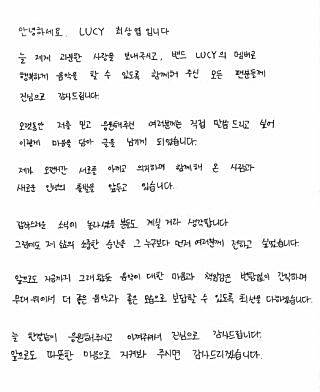 안녕하세요. LUCY 최상엽 입니다
늘 제게 과분한 사랑을 보내주시고, 밴드 LUCY의 멤버로
행복하게 음악을 할 수 있도록 함께해 주신 모든 팬분들께
진심으로 감사드립니다.
오랫동안 저를 믿고 응원해주신 여러분께는 직접 말씀 드리고 싶어
이렇게 마음을 담아 글을 남기게 되었습니다.
제가 오랜시간 서로를 아끼고 의지하며 함께해 온 사람과
새로운 인생의 출발을 앞두고 있습니다.
갑작스러운 소식에 놀라셨을 분들도 계실 거라 생각합니다
그럼에도 제 삶의 소중한 순간을 그 누구보다 먼저 여러분께 전하고 싶었습니다.
앞으로도 지금까지 그래왔듯 음악에 대한 마음과 책임감은 변함없이 간직하며
무대 위에서 더 좋은 음악과 좋은 모습으로 보답할 수 있도록 최선을 다하겠습니다.
늘 한결같이 응원해주시고 아껴주셔서 진심으로 감사드립니다.
앞으로도 따뜻한 마음으로 지켜봐 주시면 감사드리겠습니다.